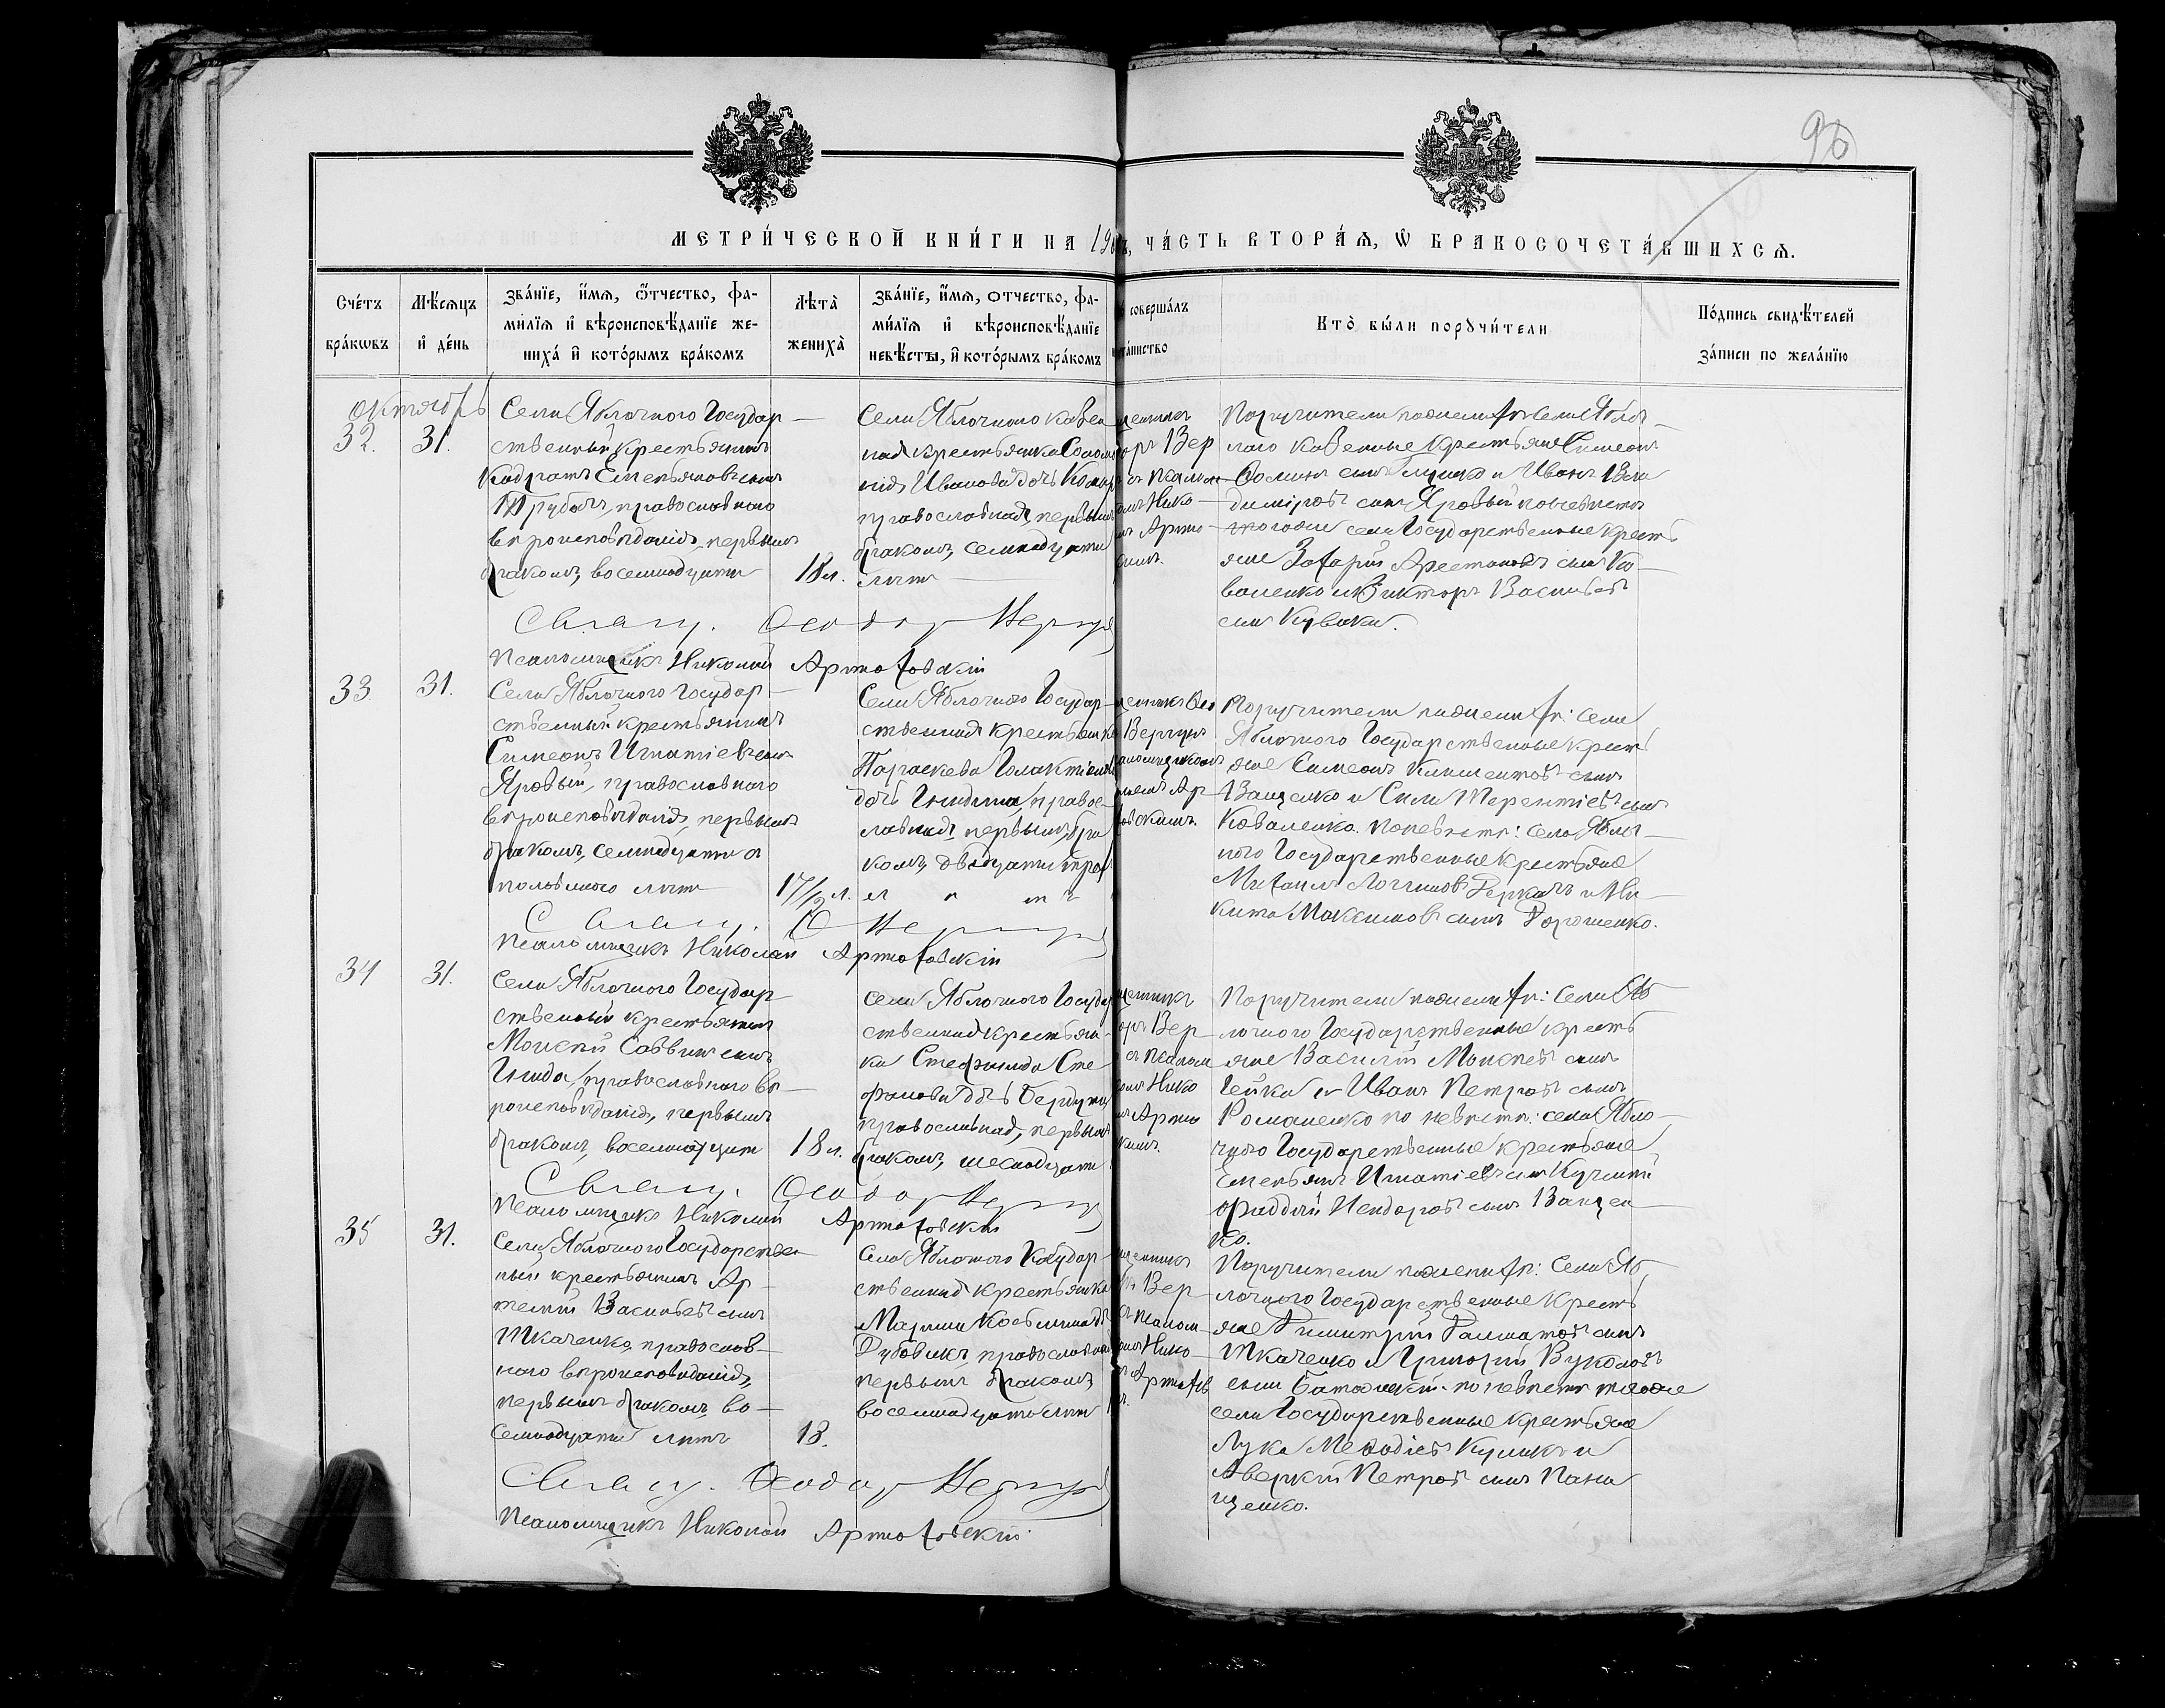 96
МЕТРИ́ЧЕСКОЙ КНИ́ГИ НА 19 , ЧА́СТЬ ВТОРА́Ѧ, Ѽ БРАКОСОЧЕТА́ВШИХСѦ.
Сче́тъ бра́кѡвъ
Мѣ́сѧцъ и҆ де́нь
Зва́нїе, и҆́мѧ, ѻ҆́тчество, фами́лїѧ и҆ вѣроисповѣ́данїе жениха̀ и҆ кото́рымъ бра́комъ
Лѣ́та̀ жениха̀
Зва́нїе, и҆́мѧ, ѻтчество, фами́лїѧ и҆ вѣроисповѣ́данїе невѣ́сты, и҆ кото́рымъ бра́комъ
соверша́лъ
та́инство
Кто̀ бы́ли порꙋчи́тели
По́дпись свидѣ́телей за́писи по жела́нїю
октябрь
32. 31.
Села Яблочного Государ-
ственный крестьянинъ
Кодратъ Емельяновъ сынъ
Трубачъ, православнаго
вѣроисповѣданія, первымъ
бракомъ, восемнадцати
18 л.
Села Яблочного казен-
ная крестьянка
Иванова дочь
православная, первымъ
бракомъ, семнадцати
лѣтъ
щенникъ
оръ Вер
съ псалом
Нико
Артю
Поручители по женихѣ: села Яблоч-
наго казенные крестьяне Симеонъ
сынъ и Иванъ Вла
диміровъ сынъ Яровый по невѣстѣ
того же села Государственные кресть
яне Захарій сынъ Ко-
валенко и Викторъ Васильевъ
сынъ
Свящ. Ѳеодоръ Вергунъ
Псаломщикъ Николай Артюховскій
33 31.
Села Яблочного Государ-
ственный крестьянинъ
Симеонъ Игнатіевъ сынъ
Яровый, православнаго
вѣроисповѣданія, первымъ
бракомъ, семнадцати съ
половиною лѣтъ
17/½ л.
Села Яблочного Государ-
ственная крестьянка
Параскева Галактіонова
дочь Гнида, правос-
лавная, первымъ бра
комъ, двадцати трехъ
лѣтъ
щенникъ Ѳео
Вергунъ
псаломщикомъ
Ар
ховскимъ.
Поручители по женихѣ: села
Яблочного Государственные кресть
яне Симеонъ Климентовъ сынъ
Ващенко и Сила Терентіевъ сынъ
Коваленко. По невѣстѣ: села Яблоч-
ного Государственные крестьяне
Михаилъ Логгиновъ Деркачъ и Ни-
кита Максимовъ сынъ Дорошенко.
Свящ. Ѳ Вергунъ
Псаломщикъ Николай Артюховскій
34 31.
Села Яблочного Государ-
ственный крестьянинъ
Моисей Саввинъ сынъ
Гнида, православнаго вѣ-
роисповѣданія, первымъ
бракомъ, восемнадцати
18 л.
села Яблочного Государ
ственная крестьян-
ка Стефанида Сте
фанова дочь
православная, первымъ
бракомъ, шестнадцати
щенникъ
оръ Вер
съ псалом
Нико
Артю
Поручители по женихѣ: села Яб
лочного Государственные кресть
яне Василій Моисеевъ сынъ
Гейка и Иванъ Петровъ сынъ
Романенко по невѣстѣ: села Ябло-
чного Государственные крестьяне
Емельянъ Игнатіевъ сынъ
Фаддей сынъ Ващен
ко.
Свящ. Ѳеодоръ Вергунъ
Псаломщикъ Николай Артюховскій
35 31.
Села Яблочного Государствен
ный крестьянинъ Ар-
темій Васильевъ сынъ
Ткаченко, православ-
наго вѣроисповѣданія,
первымъ бракомъ, во-
семнадцати лѣтъ
18.
Села Яблочного Государ-
ственная крестьянка
Марина Косьмина дочь
Дубовикъ, православная
первымъ бракомъ,
восемнадцати лѣтъ
щенникъ
Вер
псалом
Нико
Артюхов
Поручители по женихѣ: села Яб
лочного Государственные кресть
яне Димитрій сынъ
Ткаченко и Григорій Вуколовъ
сынъ по невѣстѣ того же
села Государственные крестьяне
Лука Меѳодіевъ Куликъ и
Аверкій Петровъ сынъ Пана
щенко.
Свящ. Ѳеодоръ Вергунъ
Псаломщикъ Николай Артюховскій